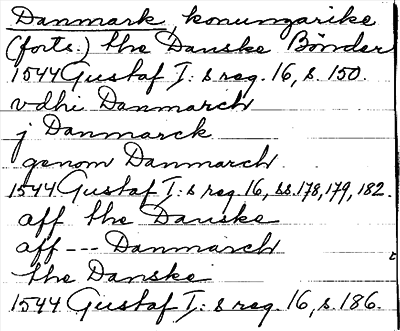 Danmark, konungarike
(forts.) the Danske Bönder
1544 Gustaf I:s reg. 16, s. 150.
vdhi Danmarch
j Danmarck
genom Danmarch
1544 Gustaf I:s reg. 16, ss. 178, 179, 182.
aff the Danske
aff --- Danmarch
the Danske
1544 Gustaf I:s reg. 16, s. 186.